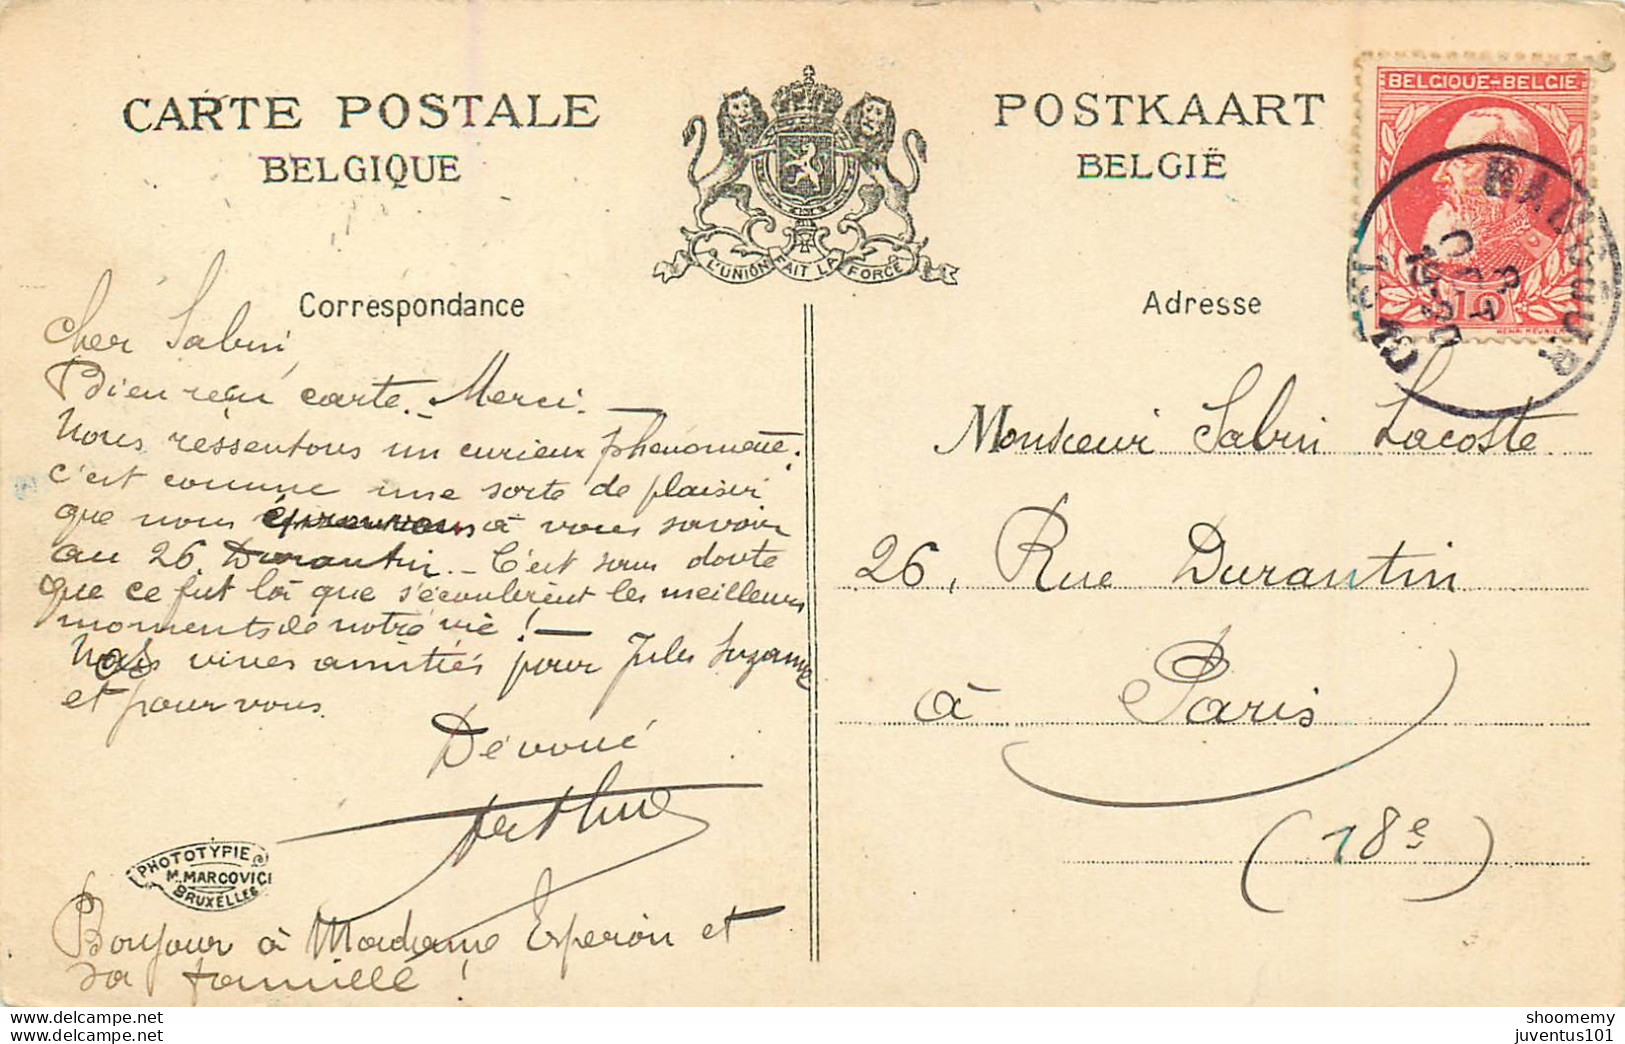 CARTE POSTALE
BELGIQUE
POSTKAART
BELGIË
L'UNION FAIT LA FORCE
BELGIQUE-BELGIE
10
HENRI MEUNIER
Correspondance
Adresse
Cher Sabin,
Bien reçu carte. - Merci. -
Nous ressentons un curieux phénomène.
C'est comme une sorte de plaisir
que nous éprouvons à vous savoir
au 26 Durantin. - C'est sans doute
que ce fut là que s'écoulèrent les meilleurs
moments de notre vie ! -
Nos vives amitiés pour Jules Suzanne
et pour vous.
Dévoué
Arthur
PHOTOTYPIE
M. MARCOVICI
BRUXELLES
Bonjour à Madame Esperon et
sa famille !
Monsieur Sabin Lacoste
26, Rue Durantin
à Paris
(18e)
delcampe.net
delcampe.net
shoomemy
juventus101